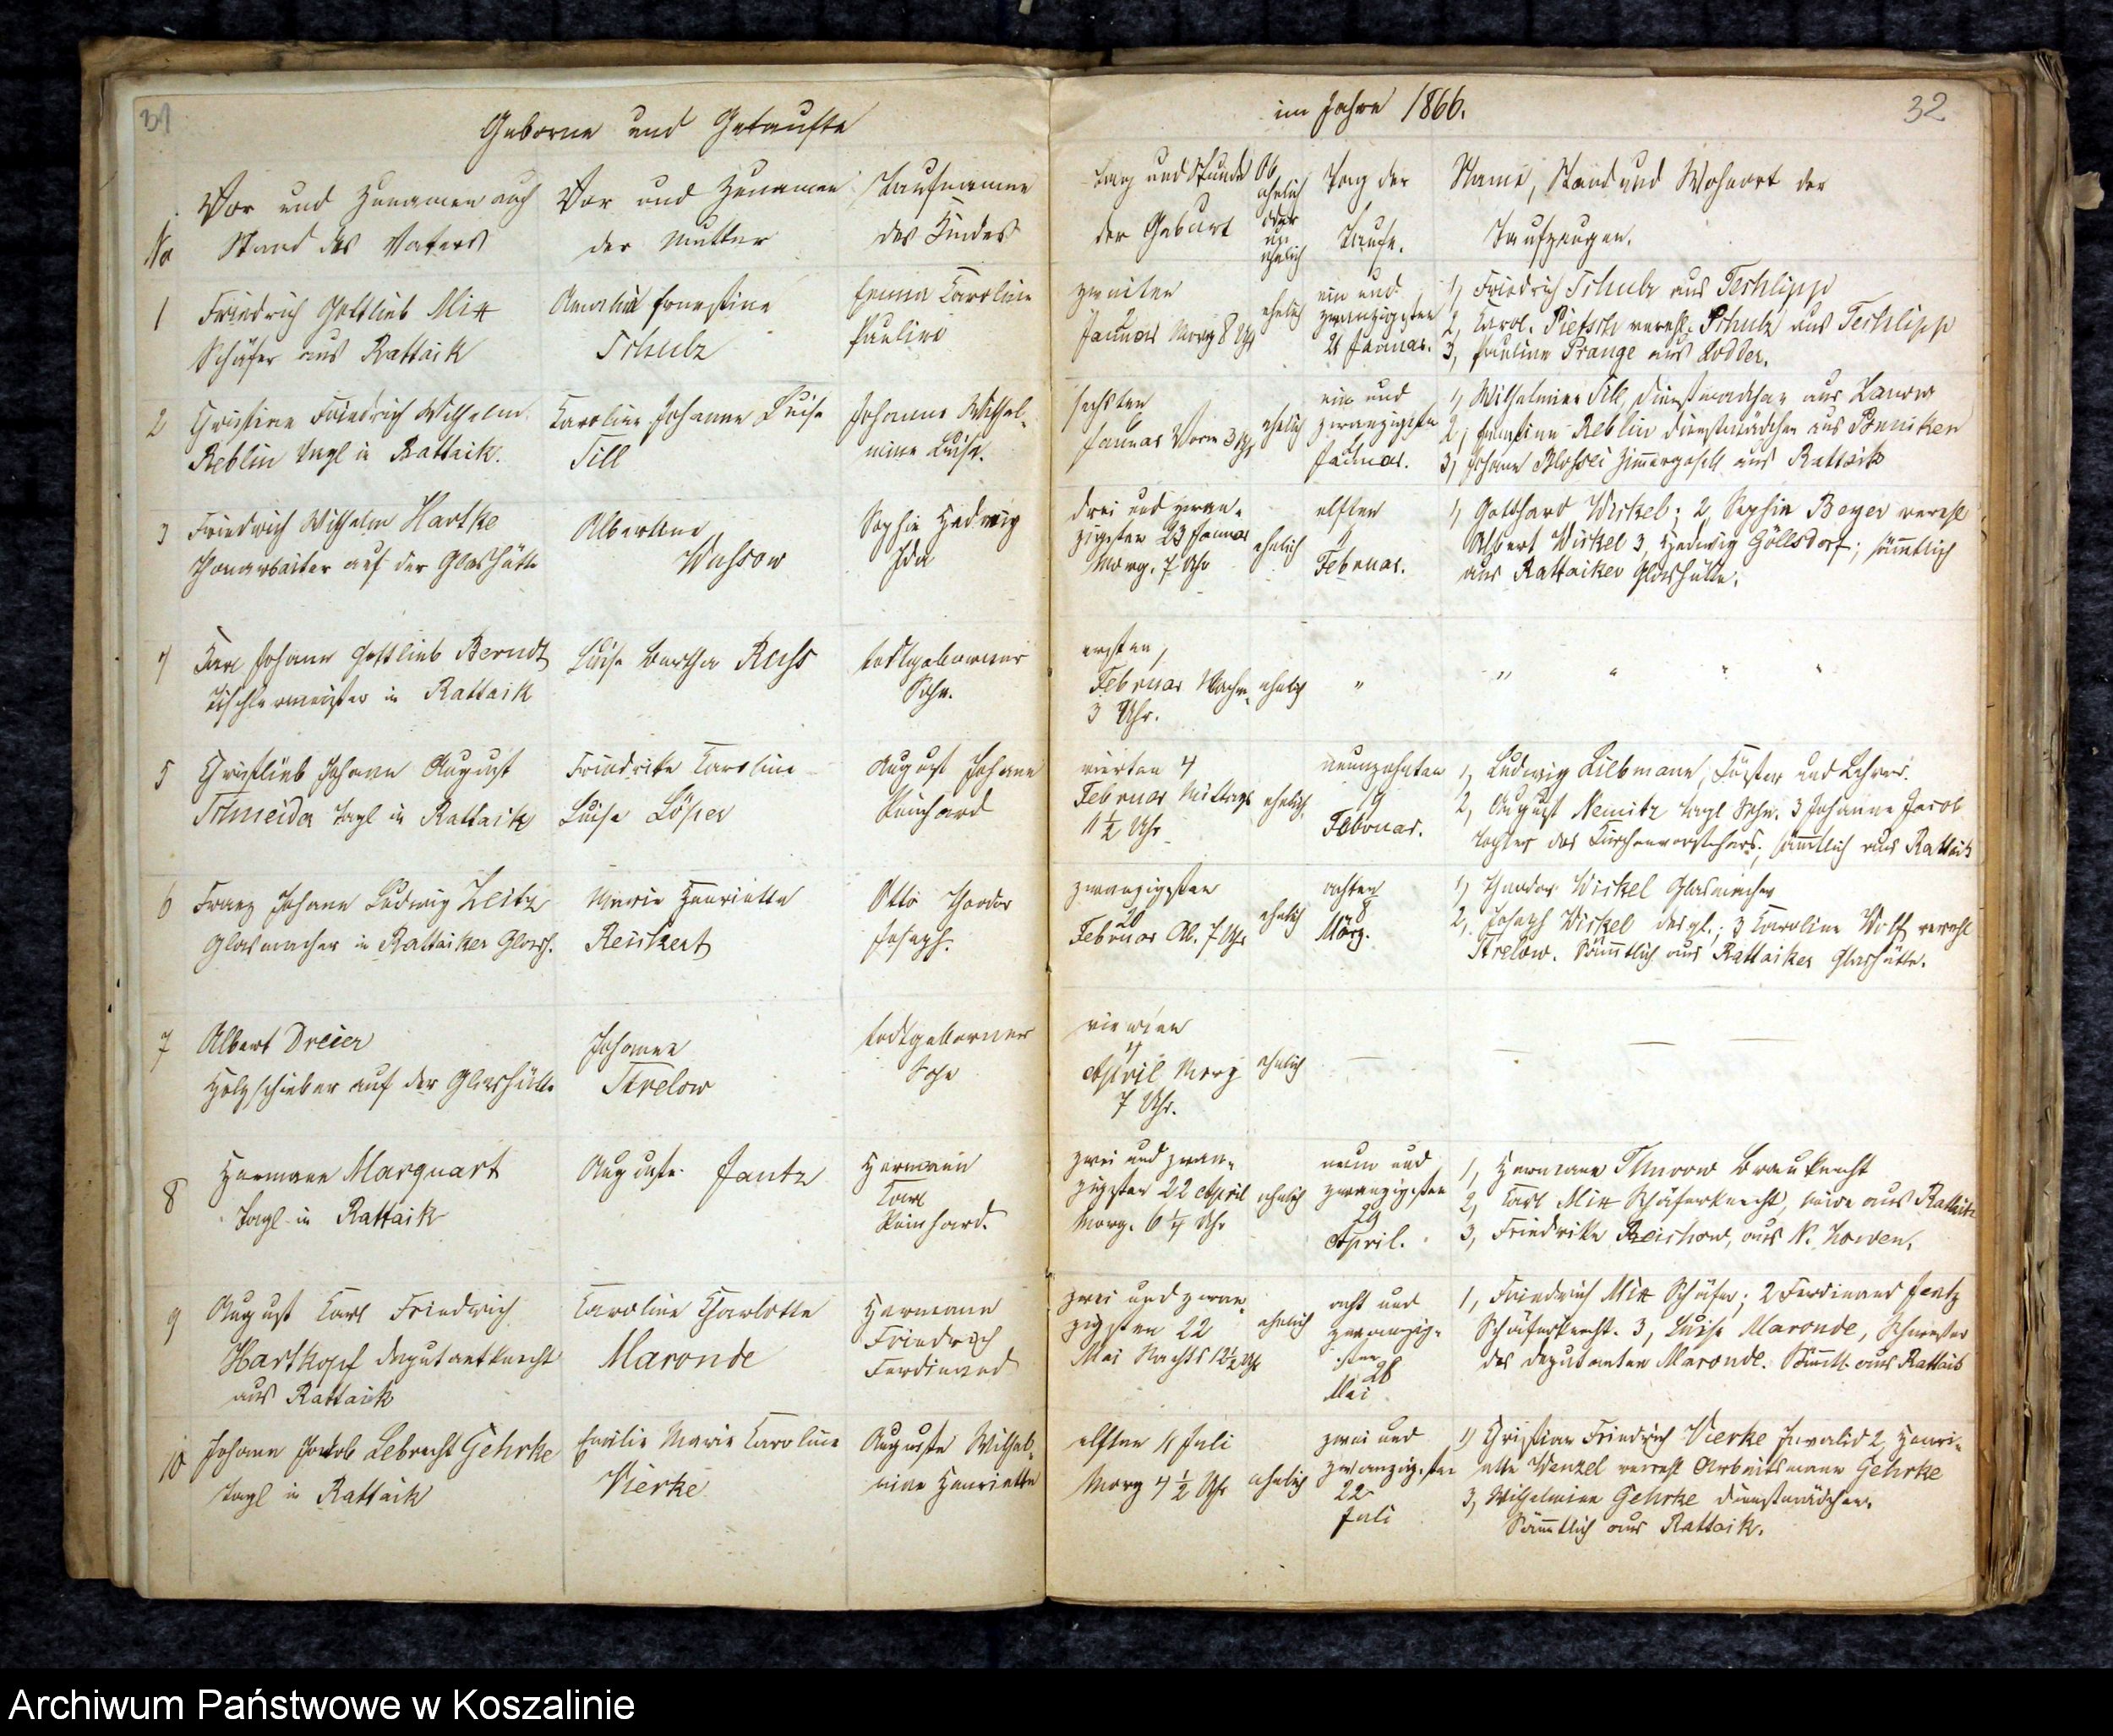 31
Geborne und Getaufte
No
Vor und Zunamen auch
Stand des Vaters
Vor und Zunamen
der Mutter
Taufname
des Kindes
1
Friedrich Gottlieb Mix
Schäfer aus Rattaik
Amalie Ernestine
Schulz
Emma Caroline
Pauline
2
Christian Friedrich Wilhelm
Reblin Tagl in Rattaik.
Karoline Johanne Luise
Till
Johanne Wilhel-
mine Luise.
3
Friedrich Wilhelm Hartke
auf der Glashütte
Albertine
Wussow
Sophie Hedwig
Ida
4
Karl Johann Gottlieb Berndt
Tischlermeister in Rattaik
Luise Bertha Reuss
todtgeborner
Sohn.
5
Christlieb Johann August
Schneider Tagl in Rattaik
Friedrike Caroline
Luise Löper
August Johann
Reinhard
6
Franz Johann Ludwig Zeitz
Glasmacher in Rattaiker Glash.
Marie Henriette
Reickert
Otto Theodor
Joseph.
7
Albert Dreier
auf der Glashütte
Johanne
Strelow
todtgeborner
Sohn
8
Hermann Marquart
Tagl in Rattaik
Auguste Jantz
Hermann
Carl
Reinhard.
9
August Karl Friedrich
Hartkopf Deputantknecht
aus Rattaik
Caroline Charlotte
Maronde
Hermann
Friedrich
Ferdinand
10
Johann Jakob Lebrecht Gehrke
Tagl in Rattaik
Emilie Marie Caroline
Vierke
Auguste Wilhel-
mine Henriette
im Jahre 1866.
32
Tag und Stunde
der Geburt
Ob
ehelich
oder
un-
ehelich
Tag der
Taufe.
Name, Stand und Wohnort der
Taufzeugen.
zweiten
2
Januar Morg 8 Uhr
ehelich
ein und
zwanzigsten
21 Januar.
1, Friedrich Schulz aus Teschlipp
2, Karol. Pietsch verehl. Schulz aus Teschlipp
3, Pauline Prange aus Lodder.
sechsten
6
Januar Vorm 3 Uhr
ehelich
ein und
zwanzigsten
21
Januar.
1, Wilhelmine Till, Dienstmädchen aus
2, Ernestine Reblin Dienstmädchen aus
3, Johann Zimmergesell aus Rattaik
drei und zwan-
zigsten 23 Januar
Morg. 7 Uhr
ehelich
elften
11
Februar.
1, Gotthard Wirkel; 2, Sophie Beyer verehl
Albert Wirkel 3, Hedwig Göllsdorf; sämmtlich
aus Rattaiker Glashütte.
ersten,
Februar Nachm.
3 Uhr.
ehelich
" " " " "
vierten 4
Februar Mittags
11 1/2 Uhr
ehelich.
neunzehnten
19
Februar.
1, Ludwig Liebmann, Küster und Lehrer.
2, August Nemitz Tagl Sohn. 3 Johanne Jacob
Tochter des Kirchenvorstehers, sämmtlich aus Rattaik
zwanzigsten
20
Februar Ab. 7 Uhr
ehelich
achten
8
März.
1, Theodor Wirkel Glasmacher
2, Joseph Wirkel desgl.; 3 Caroline Wolf verehl
Strelow. Sämmtlich aus Rattaiker Glashütte.
vierten
4
April Morg
7 Uhr.
ehelich
— — — —
zwei und zwan-
zigsten 22 April
Morg. 6 1/4 Uhr
ehelich
neun und
zwanzigsten
29
April.
1, Hermann Brauknecht
2, Carl Mix Schäferknecht, beide aus Rattaik
3, Friedrike Reischow, aus N.
zwei und zwan-
zigsten 22
Mai Nachts 12 1/2 Uhr
ehelich
acht und
zwanzig-
sten
28
Mai
1, Friedrich Mix Schäfer; 2 Ferdinand Jantz
Schäferknecht. 3, Luise Maronde, Schwester
des Deputanten Maronde. Sämmtl. aus Rattaik
elften 11 Juli
Morg 4 1/2 Uhr
ehelich
zwei und
zwanzigsten
22
Juli
1, Christian Friedrich Vierke Invalid 2, Henri-
ette Wenzel verehl Arbeitsmann Gehrke
3, Wilhelmine Gehrke Dienstmädchen.
Sämmtlich aus Rattaik.
Archiwum Państwowe w Koszalinie